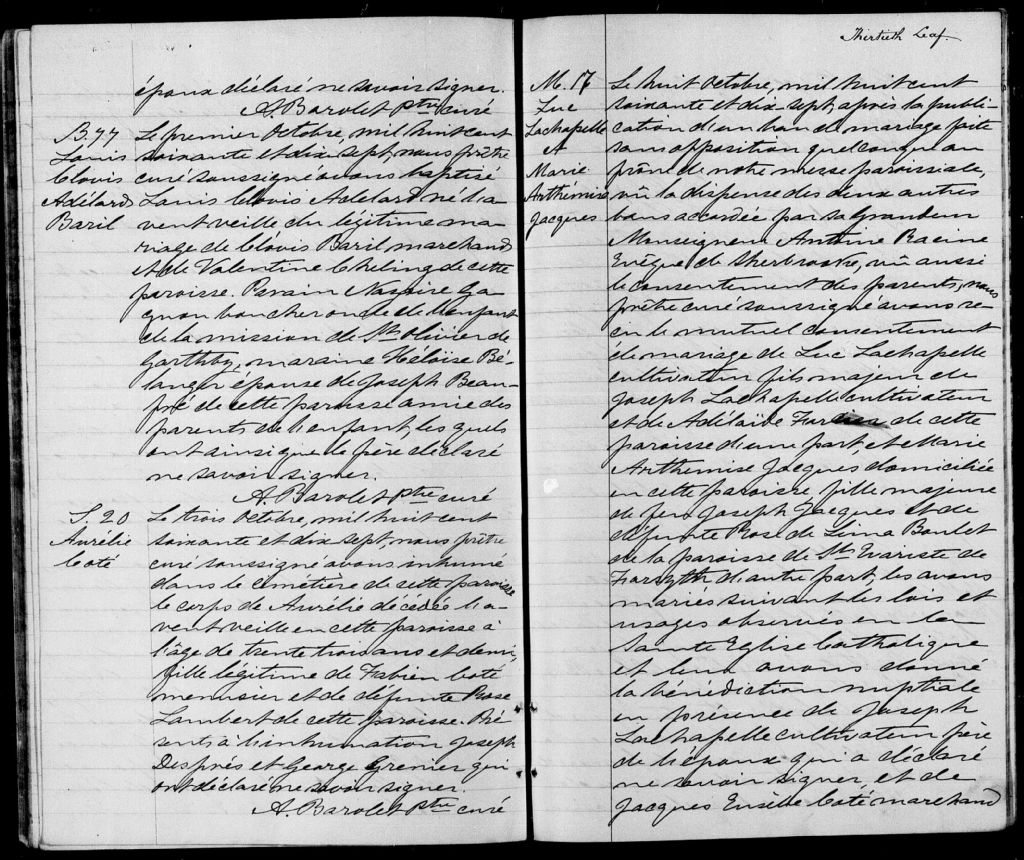 époux déclaré ne savoir signer.
A. Barolet Ptre curé
B. 77
Louis
Clovis
Adélard
Baril
Le premier Octobre, mil huit cent
soixante et dix sept, nous prêtre
curé soussigné avons baptisé
Louis Clovis Adélard né l'a-
vent veille du légitime ma-
riage de Clovis Baril marchand
& de Valentine Cheling de cette
paroisse. Parain Nazaire Ga-
gnon boucher oncle de l'enfant
de la mission de St Olivier de
Garthby, maraine Héloïse Bé-
langer épouse de Joseph Beau-
pré de cette paroisse amie des
parents de l'enfant, les quels
ont ainsi que le père déclaré
ne savoir signer.
A. Barolet ptre curé
S. 20
Aurélie
Coté
Le trois Octobre, mil huit cent
soixante et dix sept, nous prêtre
curé soussigné avons inhumé
dans le cimetière de cette paroisse
le corps de Aurélie décédée l'a-
vent veille en cette paroisse à
l'âge de trente trois ans et demi,
fille légitime de Fabien Coté
menuisier et de défunte Rose
Lambert de cette paroisse. Pré
sents à l'inhumation Joseph
Després et George Grenier qui
ont déclaré ne savoir signer.
A. Barolet ptre curé
Thirtieth Leaf.
M. 17
Luc
Lachapelle
&
Marie
Arthémise
Jacques
Le huit Octobre, mil huit cent
soixante et dix-sept, après la publi-
cation d'un ban de mariage faite
sans opposition quelconque au
prône de notre messe paroissiale,
vû la dispense des deux autres
bans accordée par sa Grandeur
Monseigneur Antoine Racine
Evêque de Sherbrooke, vû aussi
le consentement des parents, nous
prêtre curé soussigné avons re-
çu le mutuel consentement
de mariage de Luc Lachapelle
cultivateur fils majeur de
Joseph Lachapelle cultivateur
et de Adélaïde de cette
paroisse d'une part, et Marie
Arthémise Jacques domiciliée
en cette paroisse, fille majeure
de feu Joseph Jacques et de
défunte Rose de Lima Boulet
de la paroisse de St Evariste de
Forsyth d'autre part, les avons
mariés suivant les lois et
usages observés en la
Sainte Eglise Catholique
et leur avons donné
la bénédiction nuptiale
en présence de Joseph
Lachapelle cultivateur père
de l'époux qui a déclaré
ne savoir signer, et de
Jacques Eusèbe Coté marchand